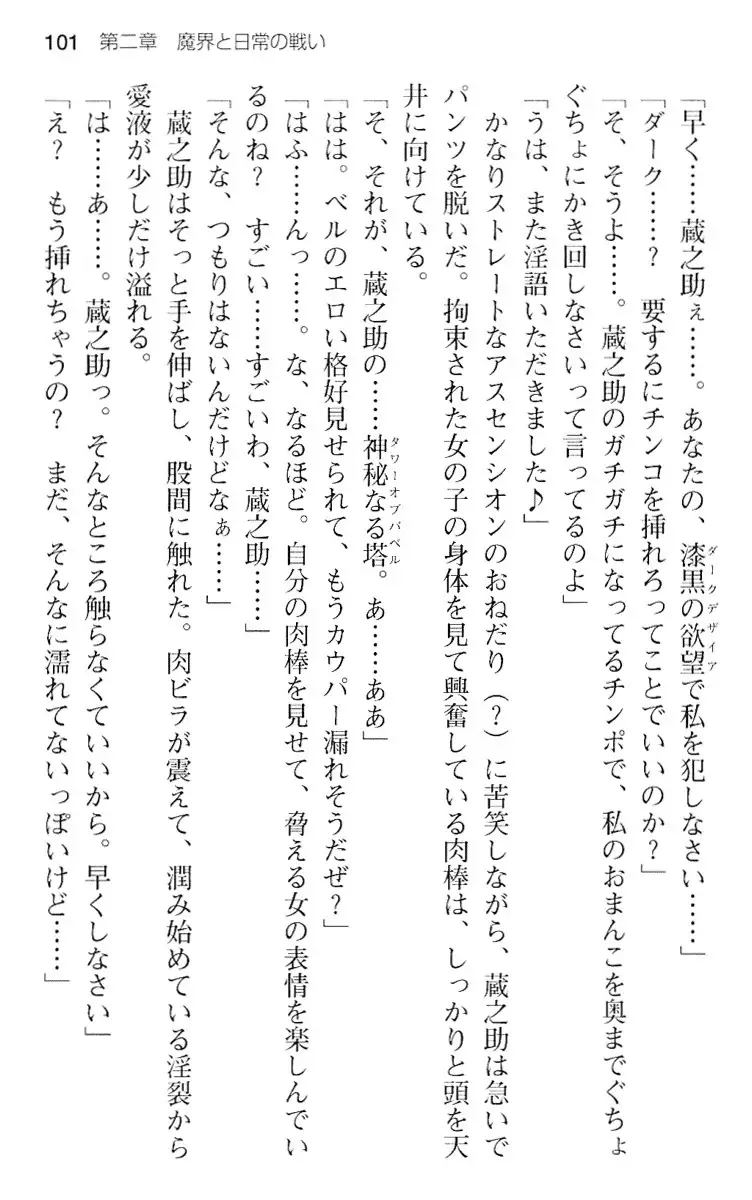 101 第二章 魔界と日常の戦い
「早く……蔵之助ぇ……。あなたの、漆黒の欲望で私を犯しなさい……」
ダークデザイア
「ダーク……? 要するにチンコを挿れろってことでいいのか?」
「そ、そうよ……。蔵之助のガチガチになってるチンポで、私のおまんこを奥までぐちょ
ぐちょにかき回しなさいって言ってるのよ」
「うは、また淫語いただきました♪」
かなりストレートなアスセンシオンのおねだり(?)に苦笑しながら、蔵之助は急いで
パンツを脱いだ。拘束された女の子の身体を見て興奮している肉棒は、しっかりと頭を天
井に向けている。
「そ、それが、蔵之助の……神秘なる塔。あ……ああ」
タワーオブバベル
「はは。ベルのエロい格好見せられて、もうカウパー漏れそうだぜ?」
「はふ……んっ……。な、なるほど。自分の肉棒を見せて、脅える女の表情を楽しんでい
るのね? すごい……すごいわ、蔵之助……」
「そんな、つもりはないんだけどなぁ……」
蔵之助はそっと手を伸ばし、股間に触れた。肉ビラが震えて、潤み始めている淫裂から
愛液が少しだけ溢れる。
「は……あ……。蔵之助っ。そんなところ触らなくていいから。早くしなさい」
「え? もう挿れちゃうの? まだ、そんなに濡れてないっぽいけど……」